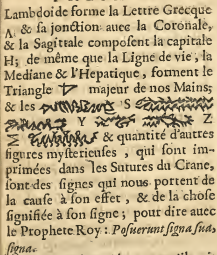 Lambdoide forme la Lettre Grecque
Λ. & sa jonction auec la Coronale,
& la Sagittale composent la capitale
H; de même que la Ligne de vie, la
Mediane & l'Hepatique, forment le
Triangle ▽ majeur de nos Mains;
& les S
Y Z
Σ & quantité d'autres
figures mysterieuses, qui sont im-
primées dans les Sutures du Crane,
sont des signes qui nous portent de
la cause à son effet, & de la chose
signifiée à son signe; pour dire avec
le Prophete Roy: Posuerunt signa sua,
signa.